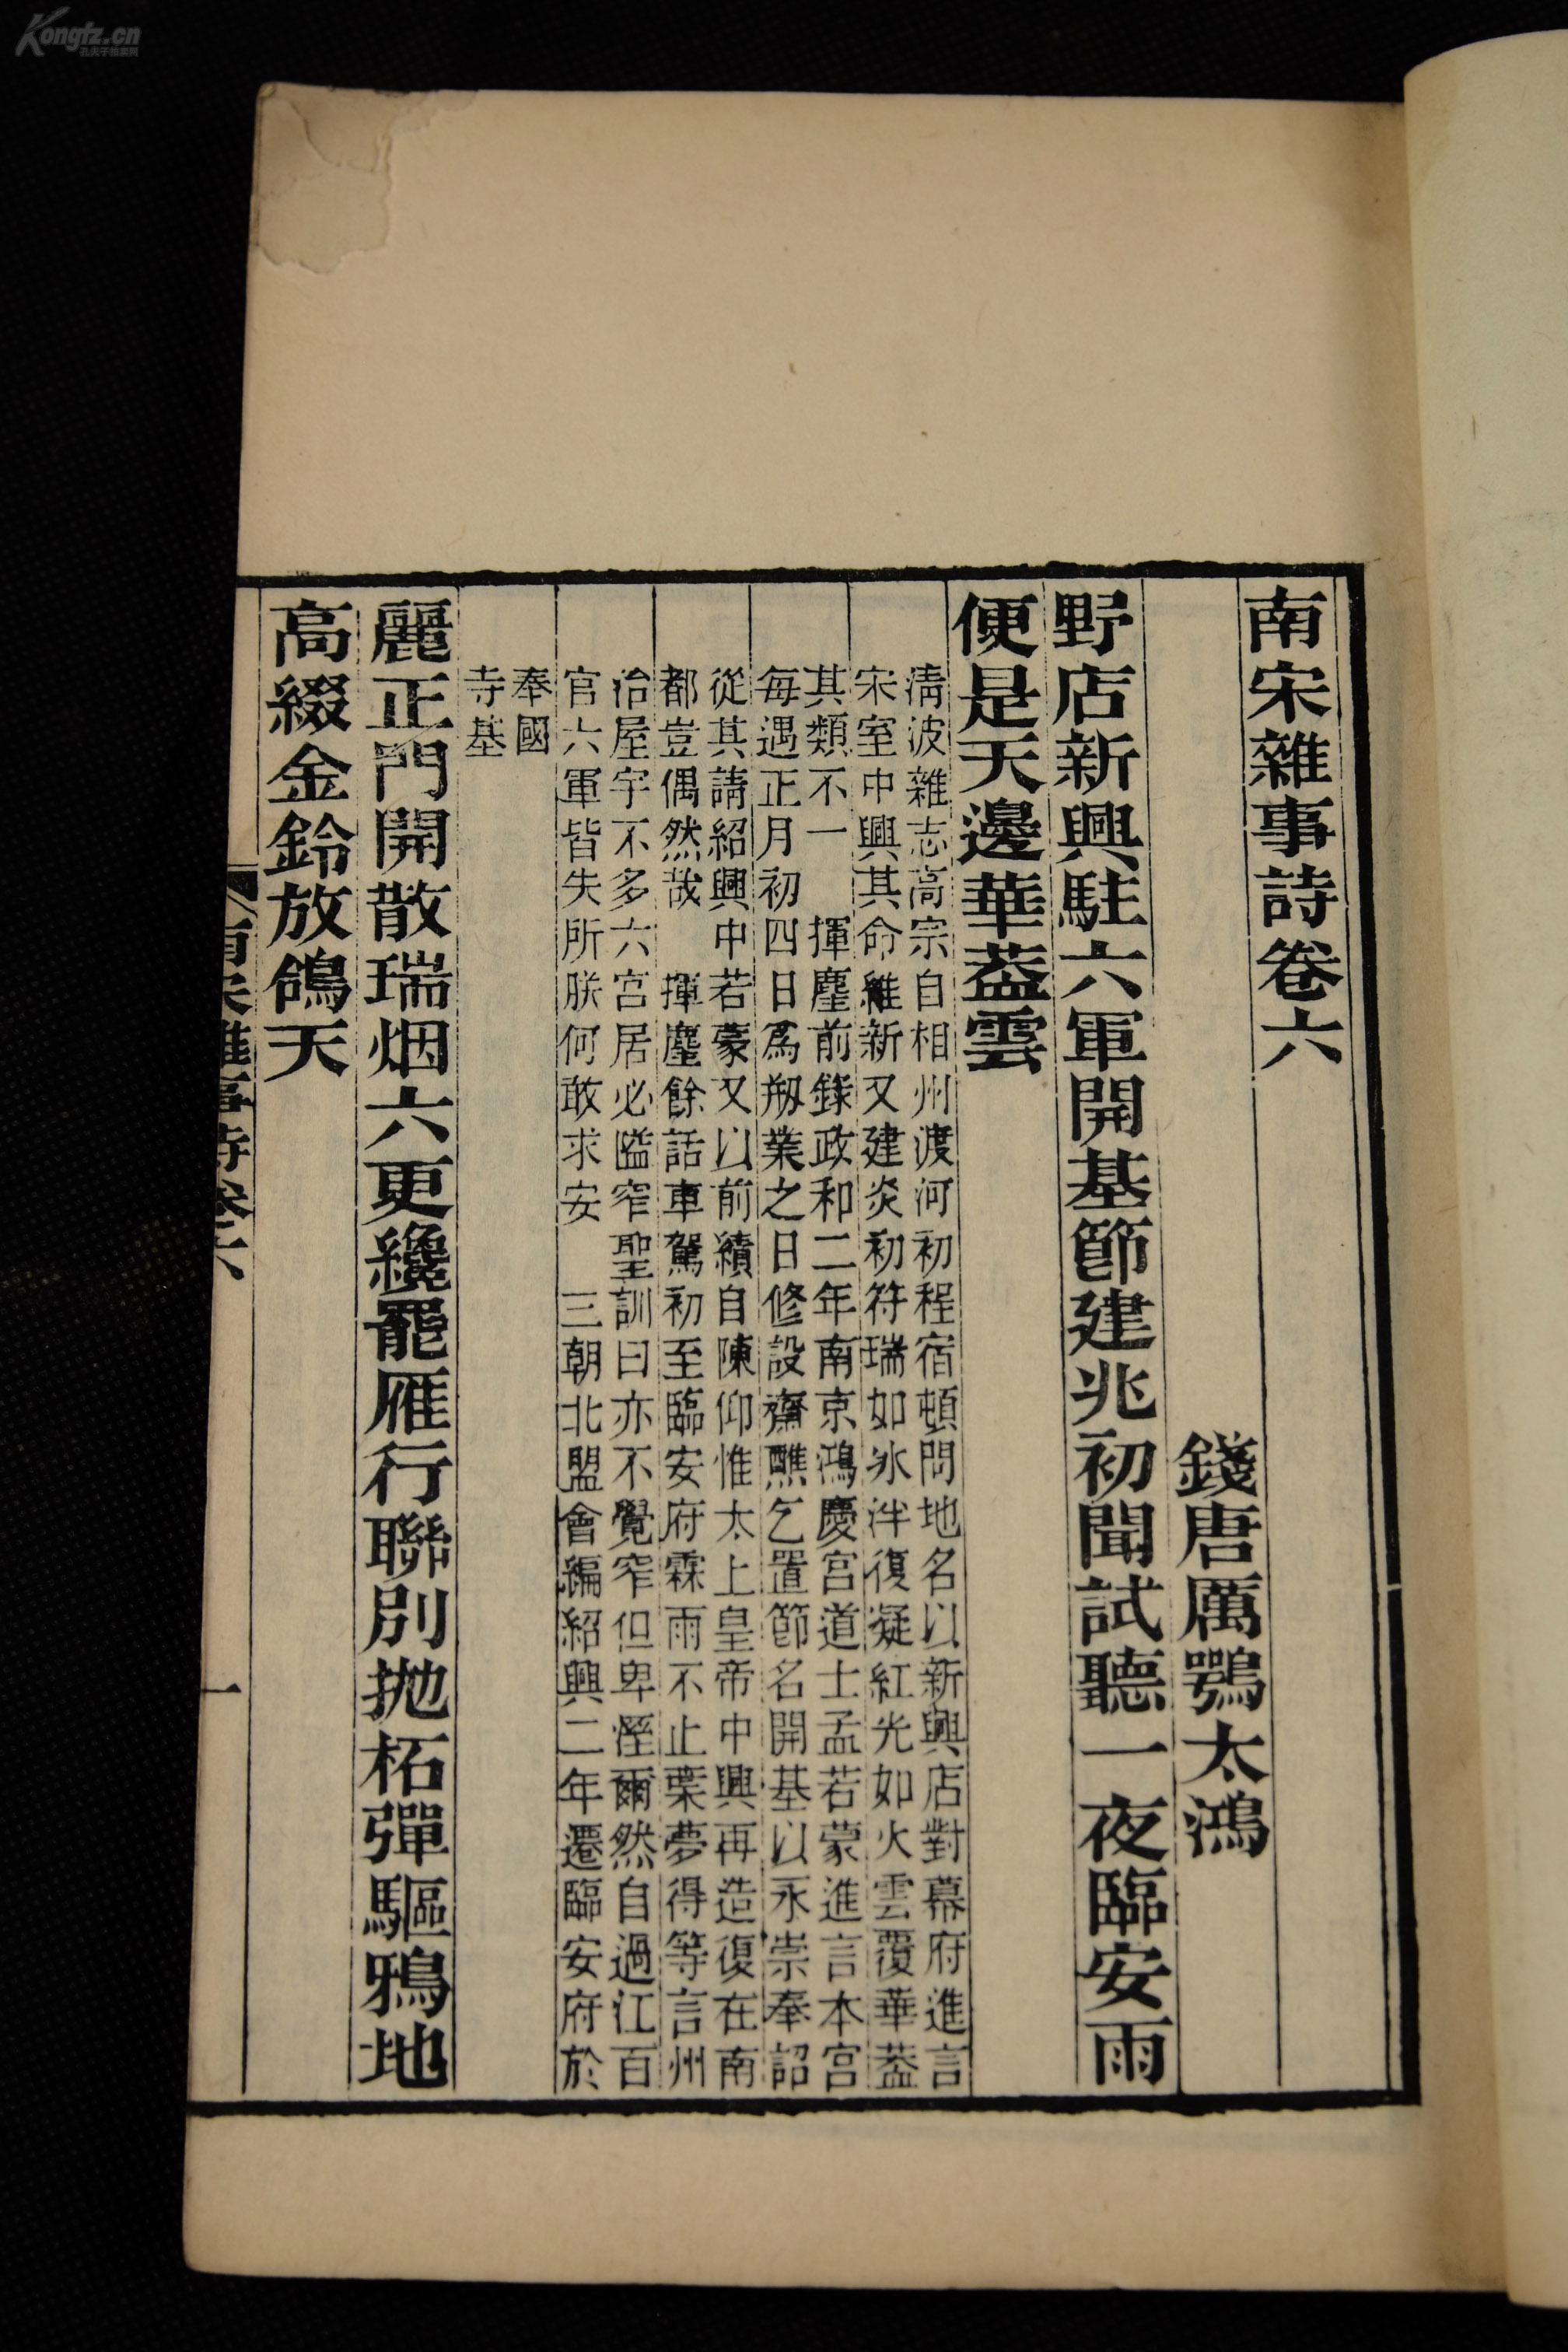 南宋雜事詩卷六
錢唐厲鶚太鴻
野店新興駐六軍開基節建兆初聞試聽一夜臨安雨
便是天邊華葢雲
淸波雜志高宗自相州渡河初程宿頓問地名以新興店對幕府進言
宋室中興其命維新又建炎初符瑞如氷泮復凝紅光如火雲覆華葢
其類不一　揮麈前錄政和二年南京鴻慶宮道士孟若蒙進言本宮
每遇正月初四日爲剏業之日修設齋醮乞置節名開基以永崇奉詔
從其請紹興中若蒙又以前績自陳仰惟太上皇帝中興再造復在南
都豈偶然哉　揮麈餘話車駕初至臨安府霖雨不止葉夢得等言州
治屋宇不多六宮居必隘窄聖訓曰亦不覺窄但卑溼爾然自過江百
官六軍皆失所朕何敢求安　三朝北盟會編紹興二年遷臨安府於
奉國
寺基
麗正門開散瑞烟六更纔罷雁行聯別拋柘彈驅鴉地
高綴金鈴放鴿天
南宋雜事詩卷六
一
Kongfz.cn
孔夫子拍卖网